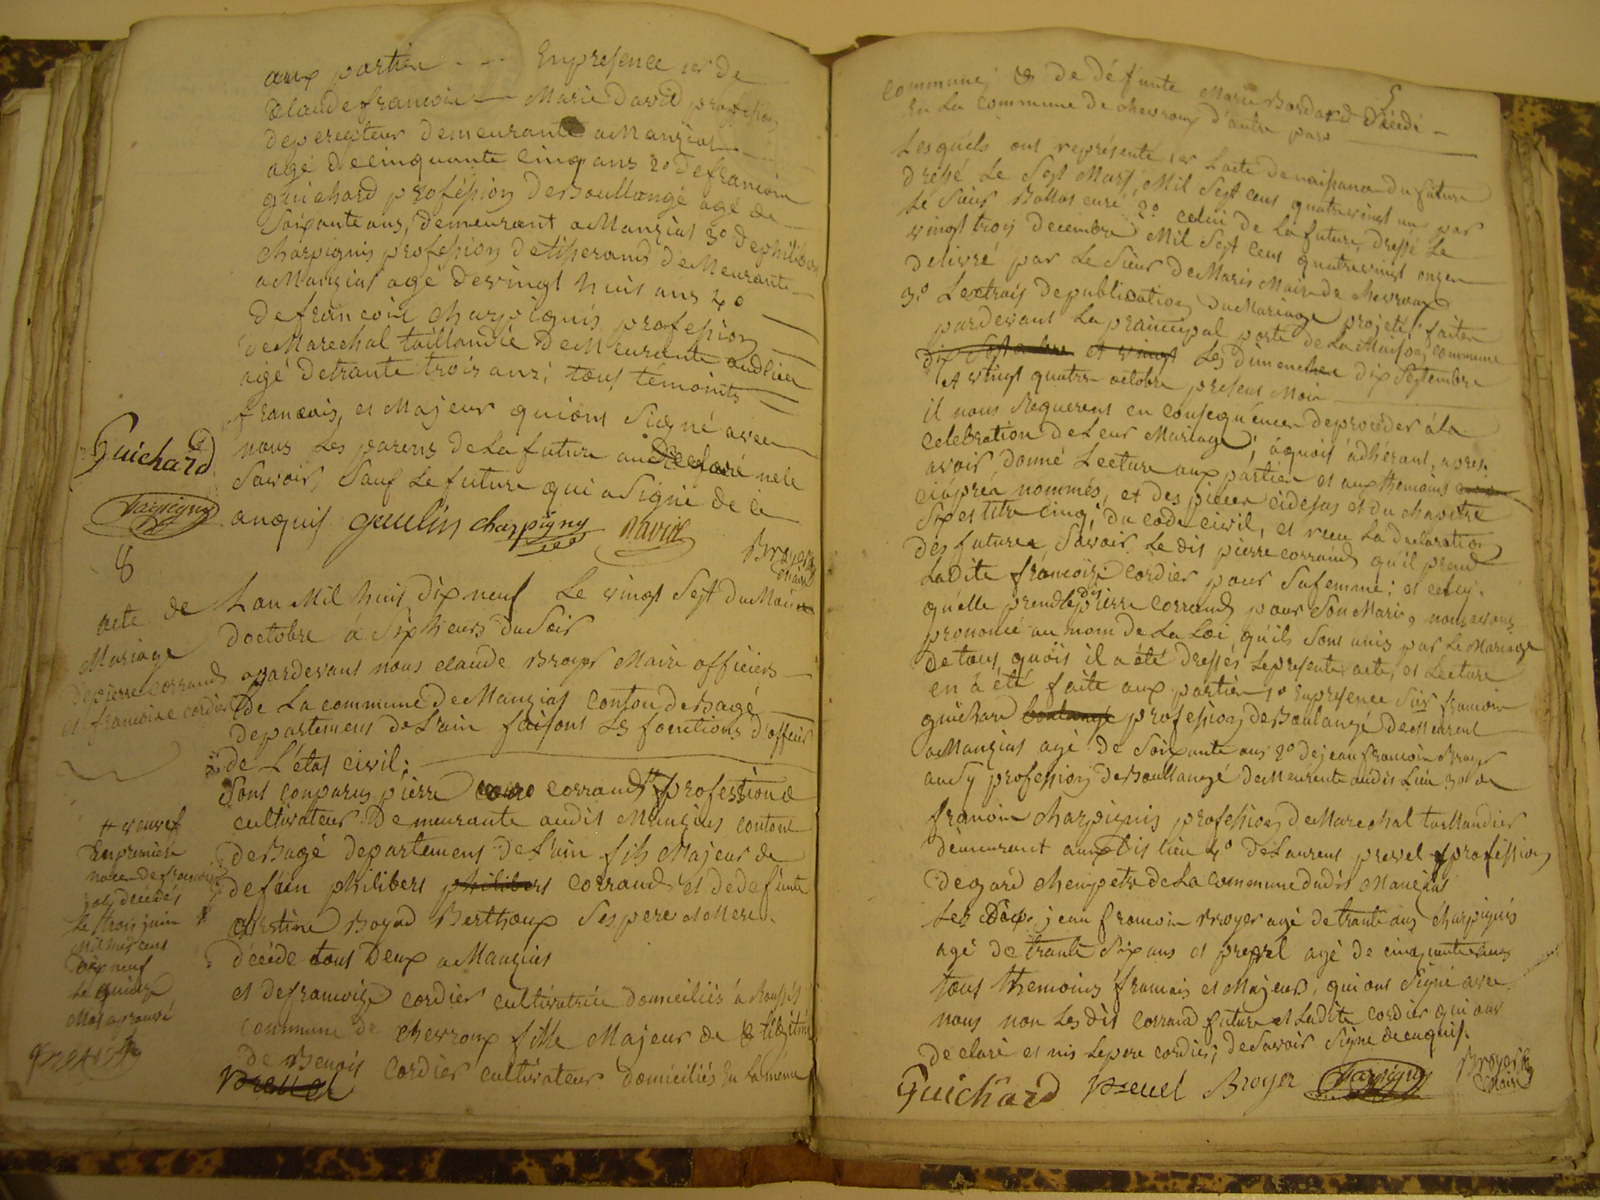 aux partien - - - En presence 1er de
Claude francois Marie David profession
de perceiteur demeurante a Manziat
agé de cinquante cinq ans 2o de francoin
guichard proféssion de Boullangé agé de
Soixante ans, demeurant a Manziat 3o de philibert
Charpignis profession de tisserand demeurante
a Manziat agé de vingt huit ans 4o
de francoin Charpignis profession
de Marechal taillandié Demeurante audlieu
agé de trante trois ans; tous témoints
francais, et Majeur qui ont Signé avec
nous Les parens de La future on Declaré nele
Savoir, Sauf Le future qui a Signé de ce
enquis
Guichard
guulin charpigny David
Broyer Maire
8
acte de
Mariage
de pierre corrand
et francoise cordier
L'an Mil huit dix neuf Le vingt Sept du Mois
doctobre à Six heurs du Soir
apardevant nous claude Broyer Maire officiers
De La commune de Manziat conton de Bagé
departement de L'ain faisons Les fonctions d'officier
de L'état civil;
Sont comparus pierre corrand # profession de
cultivateur Demeurante audit Manziat contont
de Bagé departement de L'ain fils Majeur de
defunt philibert philibert corrand et de defunte
Boyad Berthoux Ses pere et Mere
décéde tous Deux a Manziat
# veuvef
En premiere
noce de francoise
decédés
Le trois juin
Mil huit cent
dix neuf
et de francoise cordier cultivatrice domiciliés à
commune de chevroux fille Majeur de & Légitime
de Benoit cordier cultivateur domiciliés En La même
Prevel
5
commune; & de défunte Marie Bordard Décédé
En La commune de chevroux D'autre part
Lesquels ont représenté 1er L'acte de naissance du future
dréssé Le Sept Mars, Mil Sept cens quatrevingt un par
Le Sieur Ballas curé 2o celui de La future dressé Le
vingt trois decembre Mil Sept Cent quatrevingt onze
delivré par Le Sieur de Maris Maire de chevroux
3o Lextrait de publication du Mariage projeté, faiten
pardevant La praincipal porte de La Maison commune
dix Sept et vingt Les Dimenchen dix Septembre
et vingt quatre octobre present Mois
il nous Requerent en consequence de proceder à la
celebration de Leur Mariage; àquoit adhérant, apres
avoir donné Lecture aux partién et aux themoins
ciaprea nommés, et des pieces cidesus et du chapitre
Six et titre cinq, du code civil, et recu La declaration
des futures, Savoir Le dit pierre corrand qu'il prend
Ladite francoise cordier pour Sa femme; et celleci
qu'elle prend Le dit pierre corrand pour Son Mari, nous avons
prononcé au nom de La Loi qu'ils Sont unis par Le Mariage
de tous, quois il a été dressés Le presente acte, et Lecture
en à été faite aux partién 1o En presence Sieur francoin
guichard boulangé profession de Boulangé demeurent
a Manziat agé de Soixante ans 2o de jean francoin Broyer
aussy profession de Boullangé demeurente audit Lieu 3o de
francoin charpignis profession de Marechal taillandier
demeurant audit Lieu 4o de Laurent prevel profession
de gardé chempetre de La commune dudit Manziat
Les jean francoin Broyer agé de trante ans charpignis
agé de trante Six ans et prevel agé de cinquante ans
tous themoins francais et Majeur, qui ont Signé avec
nous non Les dit corrand future et Ladite cordier qui ont
declaré et nis Le pere cordier; de Savoir Signe de enquis.
Guichard Prevel Broyer
Broyer Maire